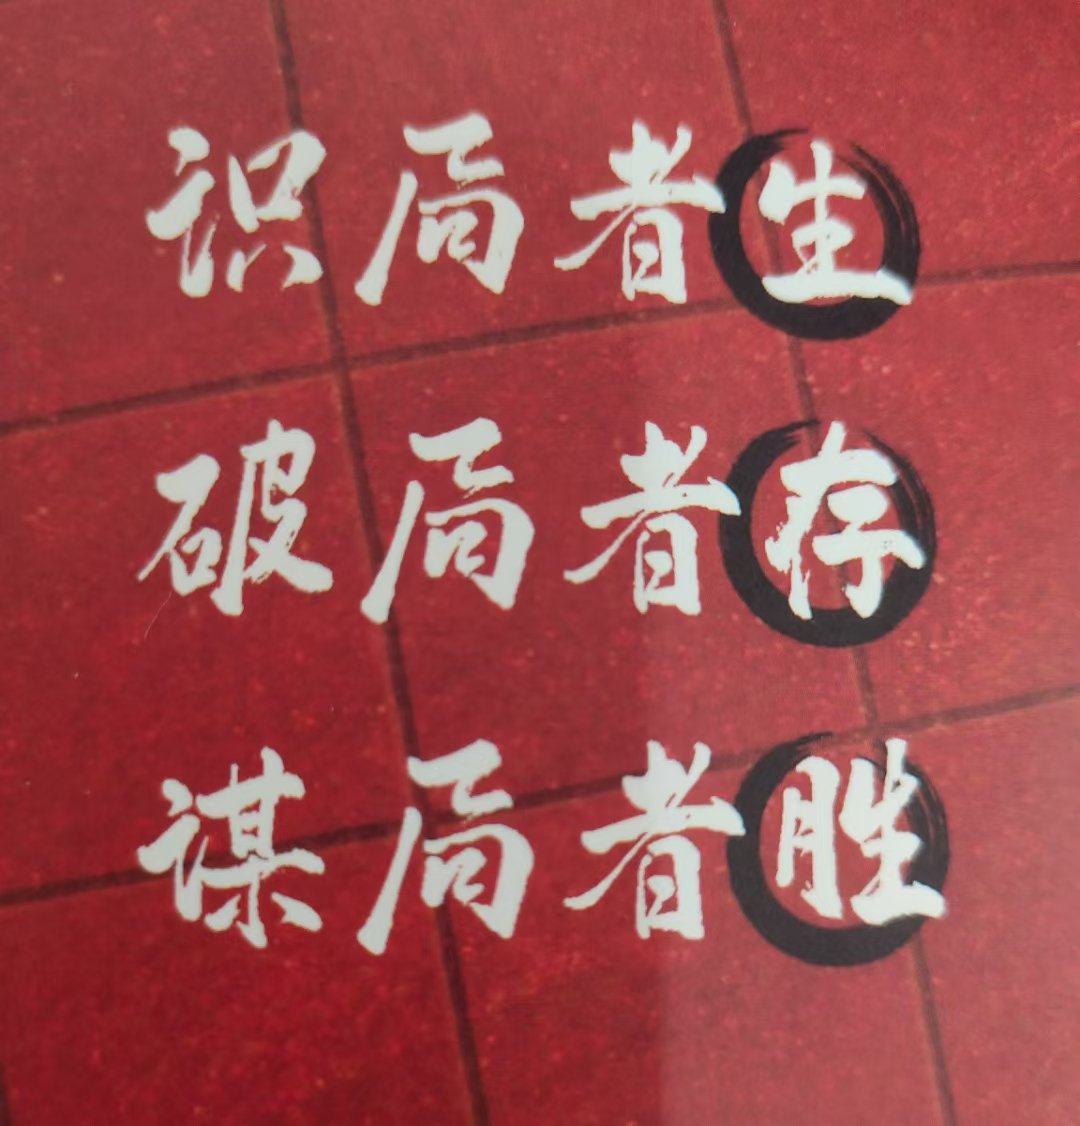 识局者生
破局者存
谋局者胜